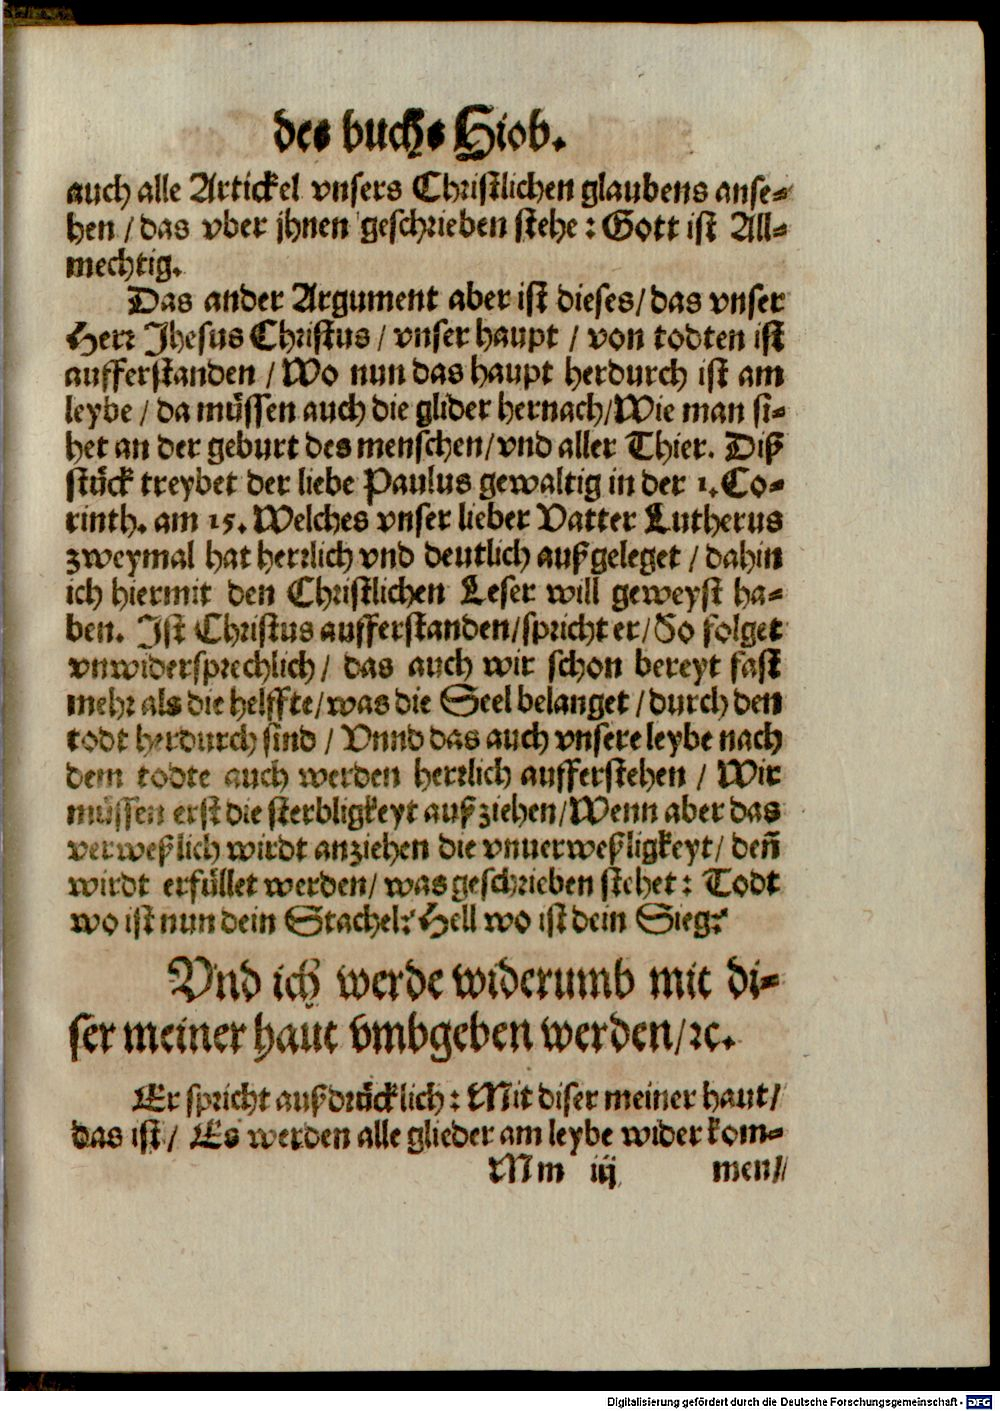 des buchs Hiob.
auch alle Artickel vnsers Christlichen glaubens anse-
hen / das vber jhnen geschrieben stehe : Gott ist All-
mechtig.
Das ander Argument aber ist dieses / das vnser
Herr Jhesus Christus / vnser haupt / von todten ist
aufferstanden / Wo nun das haupt herdurch ist am
leybe / da müssen auch die glider hernach / Wie man si-
het an der geburt des menschen / vnd aller Thier. Diß
stück treybet der liebe Paulus gewaltig in der 1. Co-
rinth. am 15. Welches vnser lieber Vatter Lutherus
zweymal hat herrlich vnd deutlich außgeleget / dahin
ich hiermit den Christlichen Leser will geweyst ha-
ben. Ist Christus aufferstanden / spricht er / So folget
vnwidersprechlich / das auch wir schon bereyt fast
mehr als die helffte / was die Seel belanget / durch den
todt herdurch sind / Vnnd das auch vnsere leybe nach
dem todte auch werden herrlich aufferstehen / Wir
müssen erst die sterbligkeyt außziehen / Wenn aber das
verweßlich wirdt anziehen die vnuerweßligkeyt / deñ
wirdt erfüllet werden / was geschrieben stehet : Todt
wo ist nun dein Stachel? Hell wo ist dein Sieg?
Vnd ich werde widerumb mit di-
ser meiner haut vmbgeben werden / ꝛc.
Er spricht außdrücklich : Mit diser meiner haut /
das ist / Es werden alle glieder am leybe wider kom-
Mm iij men /
Digitalisierung gefördert durch die Deutsche Forschungsgemeinschaft - DFG